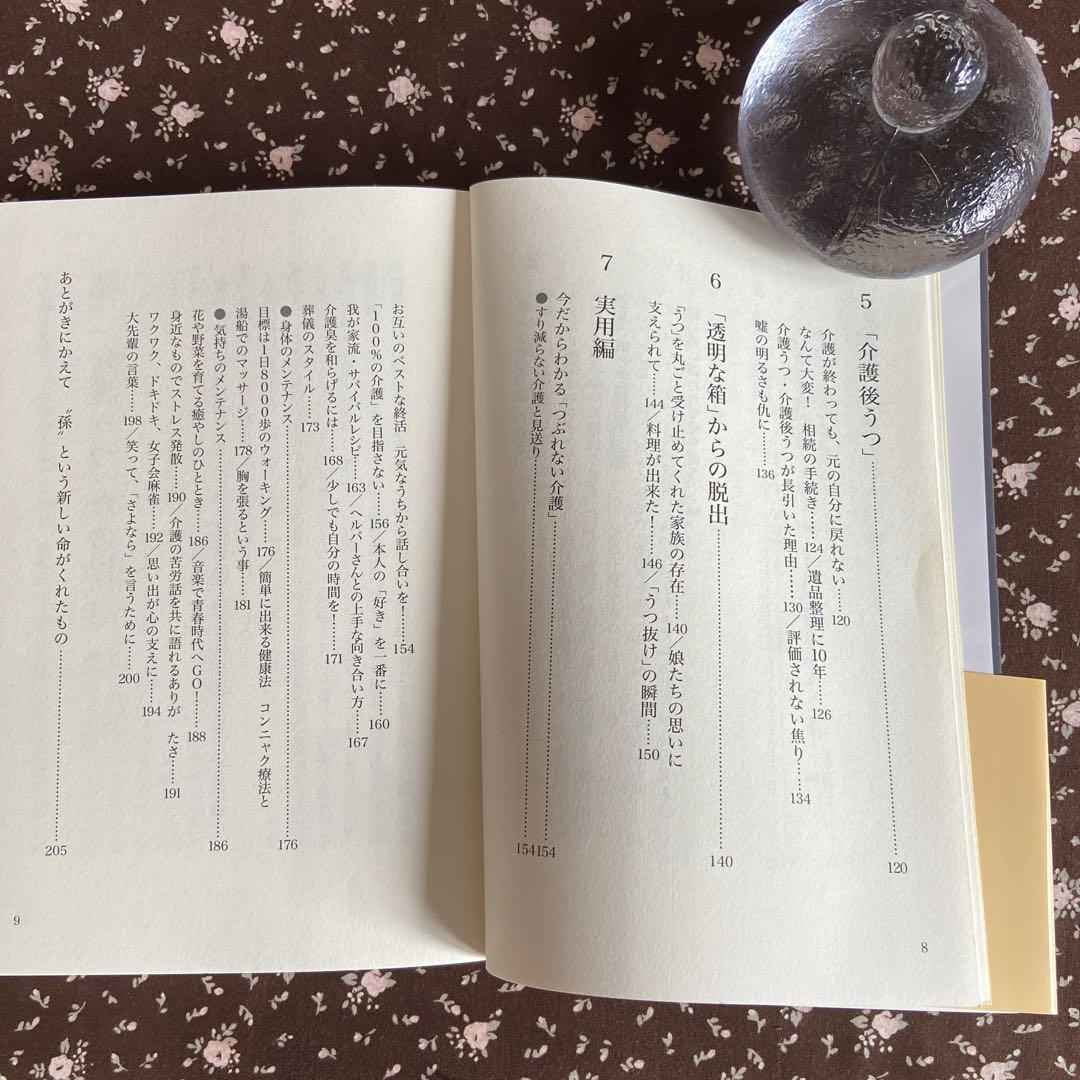 5 「介護後うつ」……120
介護が終わっても、元の自分に戻れない……120
なんて大変！ 相続の手続き……124/遺品整理に10年……126
介護うつ・介護後うつが長引いた理由……130/評価されない焦り……134
嘘の明るさも仇に……136
6 「透明な箱」からの脱出……140
「うつ」を丸ごと受け止めてくれた家族の存在……140/娘たちの思いに
支えられて……144/料理が出来た！……146/「うつ抜け」の瞬間……150
7 実用編
今だからわかる「つぶれない介護」……154
●すり減らない介護と見送り……154
8
お互いのベストな終活 元気なうちから話し合いを！……154
「100％の介護」を目指さない……156/本人の「好き」を一番に……160
我が家流・サバイバルレシピ……163/ヘルパーさんとの上手な向き合い方……167
介護臭を和らげるには……168/少しでも自分の時間を！……171
葬儀のスタイル……173
●身体のメンテナンス……176
目標は1日8000歩のウォーキング……176/簡単に出来る健康法 コンニャク療法と
湯船でのマッサージ……178/胸を張るという事……181
●気持ちのメンテナンス……186
花や野菜を育てる癒やしのひととき……186/音楽で青春時代へGO！……188
身近なものでストレス発散……190/介護の苦労話を共に語れるありがたさ……191
ワクワク、ドキドキ、女子会麻雀……192/思い出が心の支えに……194
大先輩の言葉……198/笑って、「さよなら」を言うために……200
あとがきにかえて 〝孫〟という新しい命がくれたもの……205
9